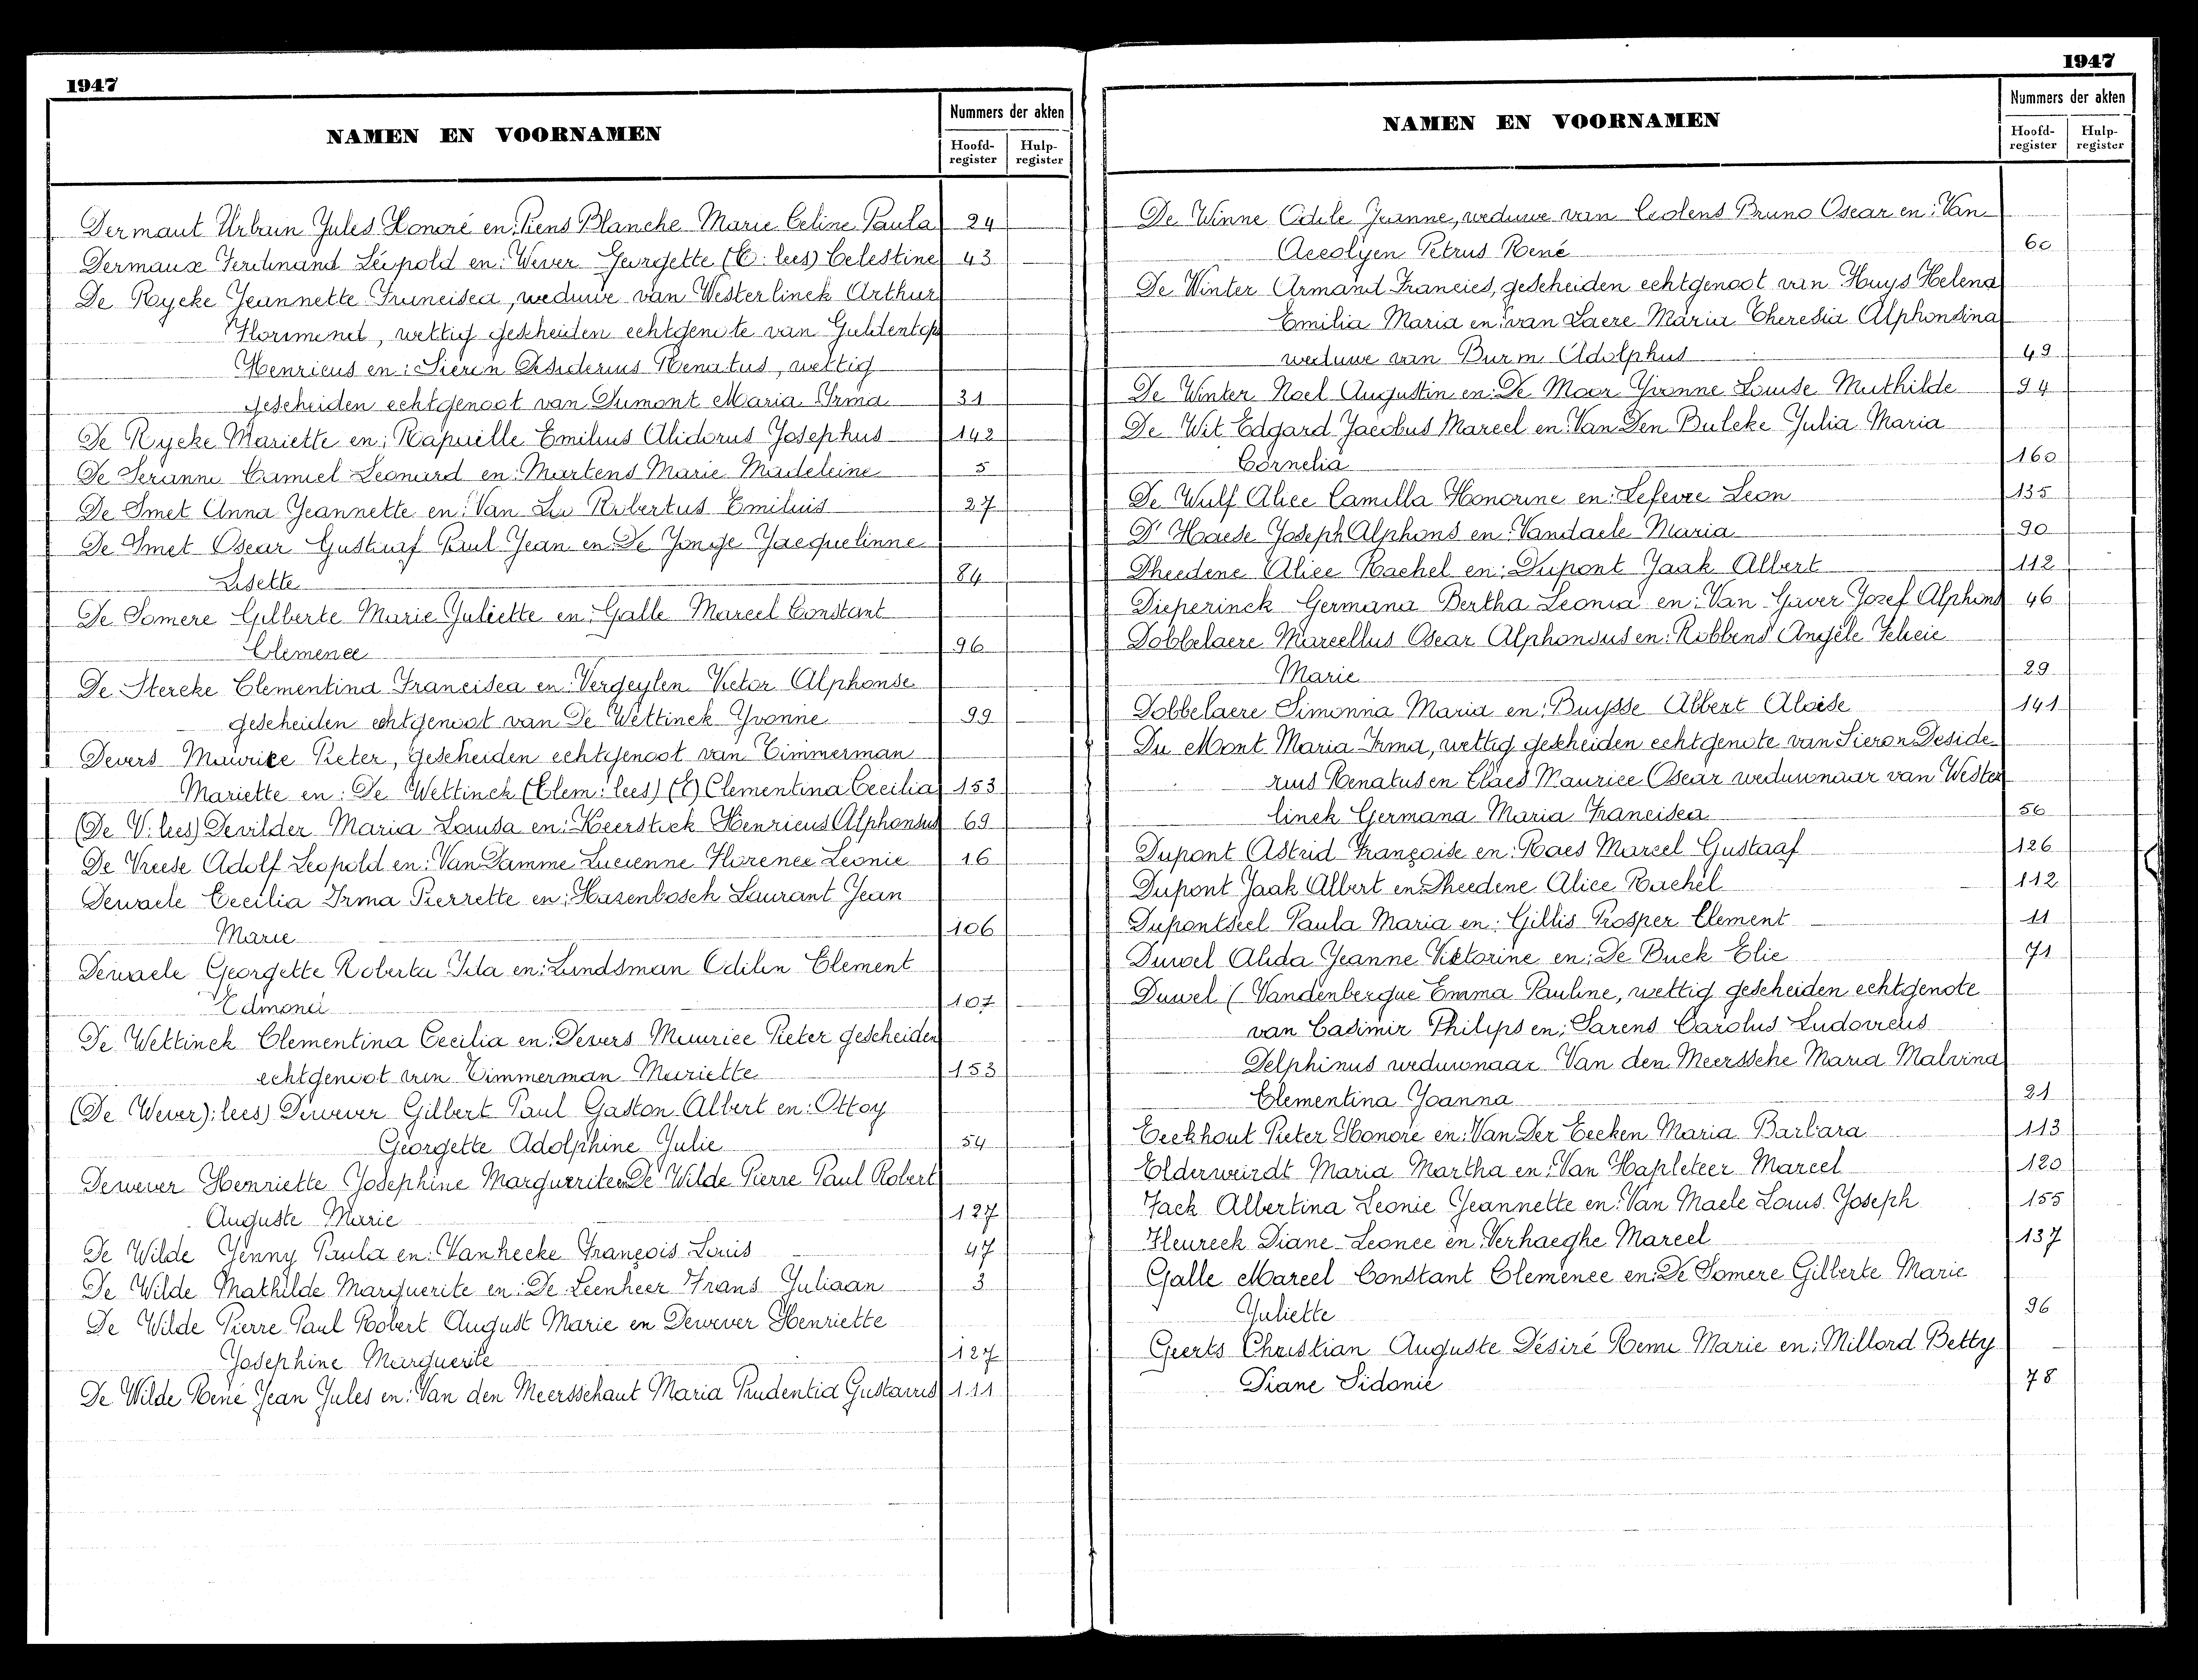 1947
NAMEN EN VOORNAMEN
Nummers der akten
Hoofd-register Hulp-register
Dermaut Urbain Jules Honoré en: Rens Blanche Marie Celine Paula 24
Dermaux Ferdinand Léopold en: Wever Georgette (C: lees) Celestine 43
De Rycke Jeannette Francisca, weduwe van Westerlinck Arthur
Florimend, wettig gescheiden echtgenote van Guldentops
Henricus en: Sieron Desiderius Renatus, wettig
gescheiden echtgenoot van Dumont Maria Irma 31
De Rycke Mariette en: Rapuille Emilius Alidorus Josephus 142
De Seranno Camiel Leonard en: Martens Marie Madeleine 5
De Smet Anna Jeannette en: Van Robertus Emilius 27
De Smet Oscar Gustaaf Paul Jean en De Jonge Jacquelinne
Lisette 84
De Somere Gilberte Marie Juliette en: Galle Marcel Constant
Clemence 96
De Stercke Clementina Francisca en: Vergeylen Victor Alphonse
gescheiden echtgenoot van De Wettinck Yvonne 99
Devers Maurice Pieter, gescheiden echtgenoot van Timmerman
Mariette en: De Wettinck (Clem: lees) (C) Clementina Cecilia 153
(De V: lees) Devilder Maria Louisa en: Keerstock Henricus Alphonsus 69
De Vreese Adolf Leopold en: Van Damme Lucienne Florence Leonie 16
Dewaele Cecilia Irma Pierrette en: Hasenbosch Laurant Jean
Marie 106
Dewaele Georgette Roberta Ida en: Landsman Odilon Clement
Edmond 107
De Wettinck Clementina Cecilia en: Devers Maurice Pieter gescheiden
echtgenoot van Timmerman Mariette 153
(De Wever): lees) Dewever Gilbert Paul Gaston Albert en: Ottoy
Georgette Adolphine Julie 54
Dewever Henriette Josephine Marguerite en De Wilde Pierre Paul Robert
Auguste Marie 127
De Wilde Jenny Paula en: Vanhecke François Louis 47
De Wilde Mathilde Marguerite en: De Leenheer Frans Juliaan 3
De Wilde Pierre Paul Robert August Marie en Dewever Henriette
Josephine Marguerite 127
De Wilde René Jean Jules en: Van den Meersschaut Maria Prudentia Gustavus 111
1947
NAMEN EN VOORNAMEN
Nummers der akten
Hoofd-register Hulp-register
De Winne Odile Jeanne, weduwe van Coolens Bruno Oscar en: Van
Accolyen Petrus René 60
De Winter Armand Francies, gescheiden echtgenoot van Huys Helena
Emilia Maria en: van Laere Maria Theresia Alphonsina
weduwe van Burm Adolphus 49
De Winter Noel Augustin en: De Moor Yvonne Louise Mathilde 94
De Wit Edgard Jacobus Marcel en: Van Den Bulcke Julia Maria
Cornelia 160
De Wulf Alice Camilla Honorine en: Lefevre Leon 135
D'Haese Joseph Alphons en: Vandaele Maria 90
Dheedene Alice Rachel en: Dupont Jaak Albert 112
Dieperinck Germana Bertha Leonia en: Van Gaver Jozef Alphons 46
Dobbelaere Marcellus Oscar Alphonsus en: Robbens Angèle Felicie
Marie 29
Dobbelaere Simonna Maria en: Buysse Albert Aloise 141
Du Mont Maria Irma, wettig gescheiden echtgenote van Sieron Deside-
rius Renatus en Claes Maurice Oscar weduwnaar van Wester
linck Germana Maria Francisca 56
Dupont Astrid Françoise en: Raes Marcel Gustaaf 126
Dupont Jaak Albert en Dheedene Alice Rachel 112
Dupontseel Paula Maria en: Gillis Prosper Clement 11
Duwel Alida Jeanne Viktorine en: De Buck Elie 71
Duwel (Vandenbergue Emma Pauline, wettig gescheiden echtgenote
van Casimir Philips en: Sarens Carolus Ludovicus
Delphinus weduwnaar Van den Meerssche Maria Malvina
Clementina Joanna 21
Eeckhout Pieter Honoré en: Van Der Eecken Maria Barbara 113
Elderweirdt Maria Martha en: Van Hapleteer Marcel 120
Fack Albertina Leonie Jeannette en: Van Maele Louis Joseph 155
Fleureck Diane Leonce en: Verhaeghe Marcel 137
Galle Marcel Constant Clemence en: De Somere Gilberte Marie
Juliette 96
Geerts Christian Auguste Désiré Remi Marie en: Millord Betty
Diane Sidonie 78